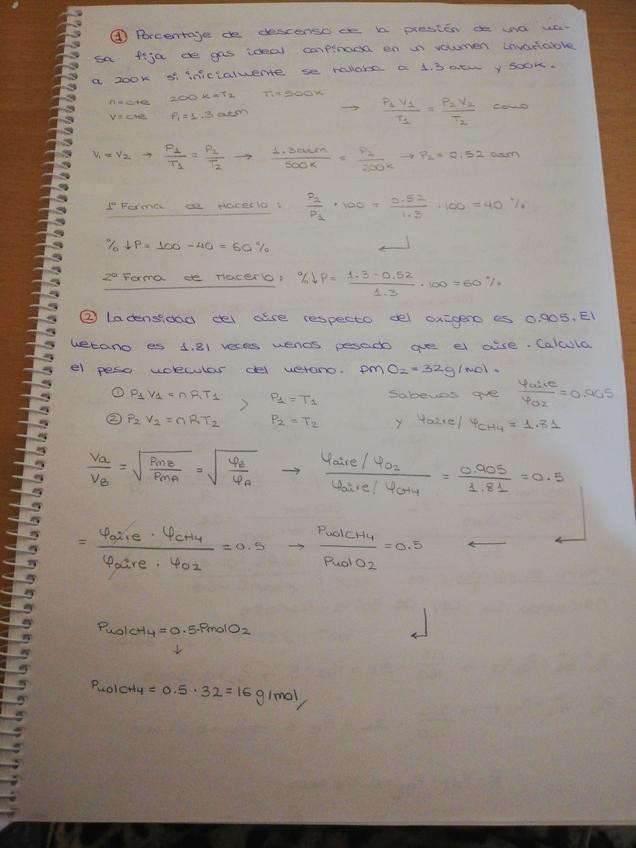 ① Porcentaje de descenso de la presión de una ma-
sa fija de gas ideal confinada en un volumen invariable
a 200K si inicialmente se hallaba a 1.3 atm y 500K.
n=cte 200K=T2 T1=500K
v=cte P1=1.3 atm → P1 V1 / T1 = P2 V2 / T2 como
V1=V2 → P1/T1 = P2/T2 → 1.3atm/500K = P2/200K → P2=0.52 atm
1ª Forma de Hacerlo: P2/P1 · 100 = 0.52/1.3 · 100 = 40 %
% ↓P = 100 - 40 = 60 %
2ª Forma de Hacerlo: % ↓P = 1.3-0.52 / 1.3 · 100 = 60 %
② La densidad del aire respecto del oxígeno es 0.905. El
metano es 1.81 veces menos pesado que el aire. Calcula
el peso molecular del metano. PM O2 = 32g/mol.
① P1 V1 = n R T1 > P1 = T1 Sabemos que φaire/φO2 = 0.905
② P2 V2 = n R T2 P2 = T2 y φaire/φCH4 = 1.81
Va/VB = √PMB/PMA = √φB/φA → φaire/φO2 / φaire/φCH4 = 0.905/1.81 = 0.5
= φaire · φCH4 / φaire · φO2 = 0.5 → PmolCH4/PmolO2 = 0.5 ←
PmolCH4 = 0.5·PmolO2
↓
PmolCH4 = 0.5 · 32 = 16 g/mol